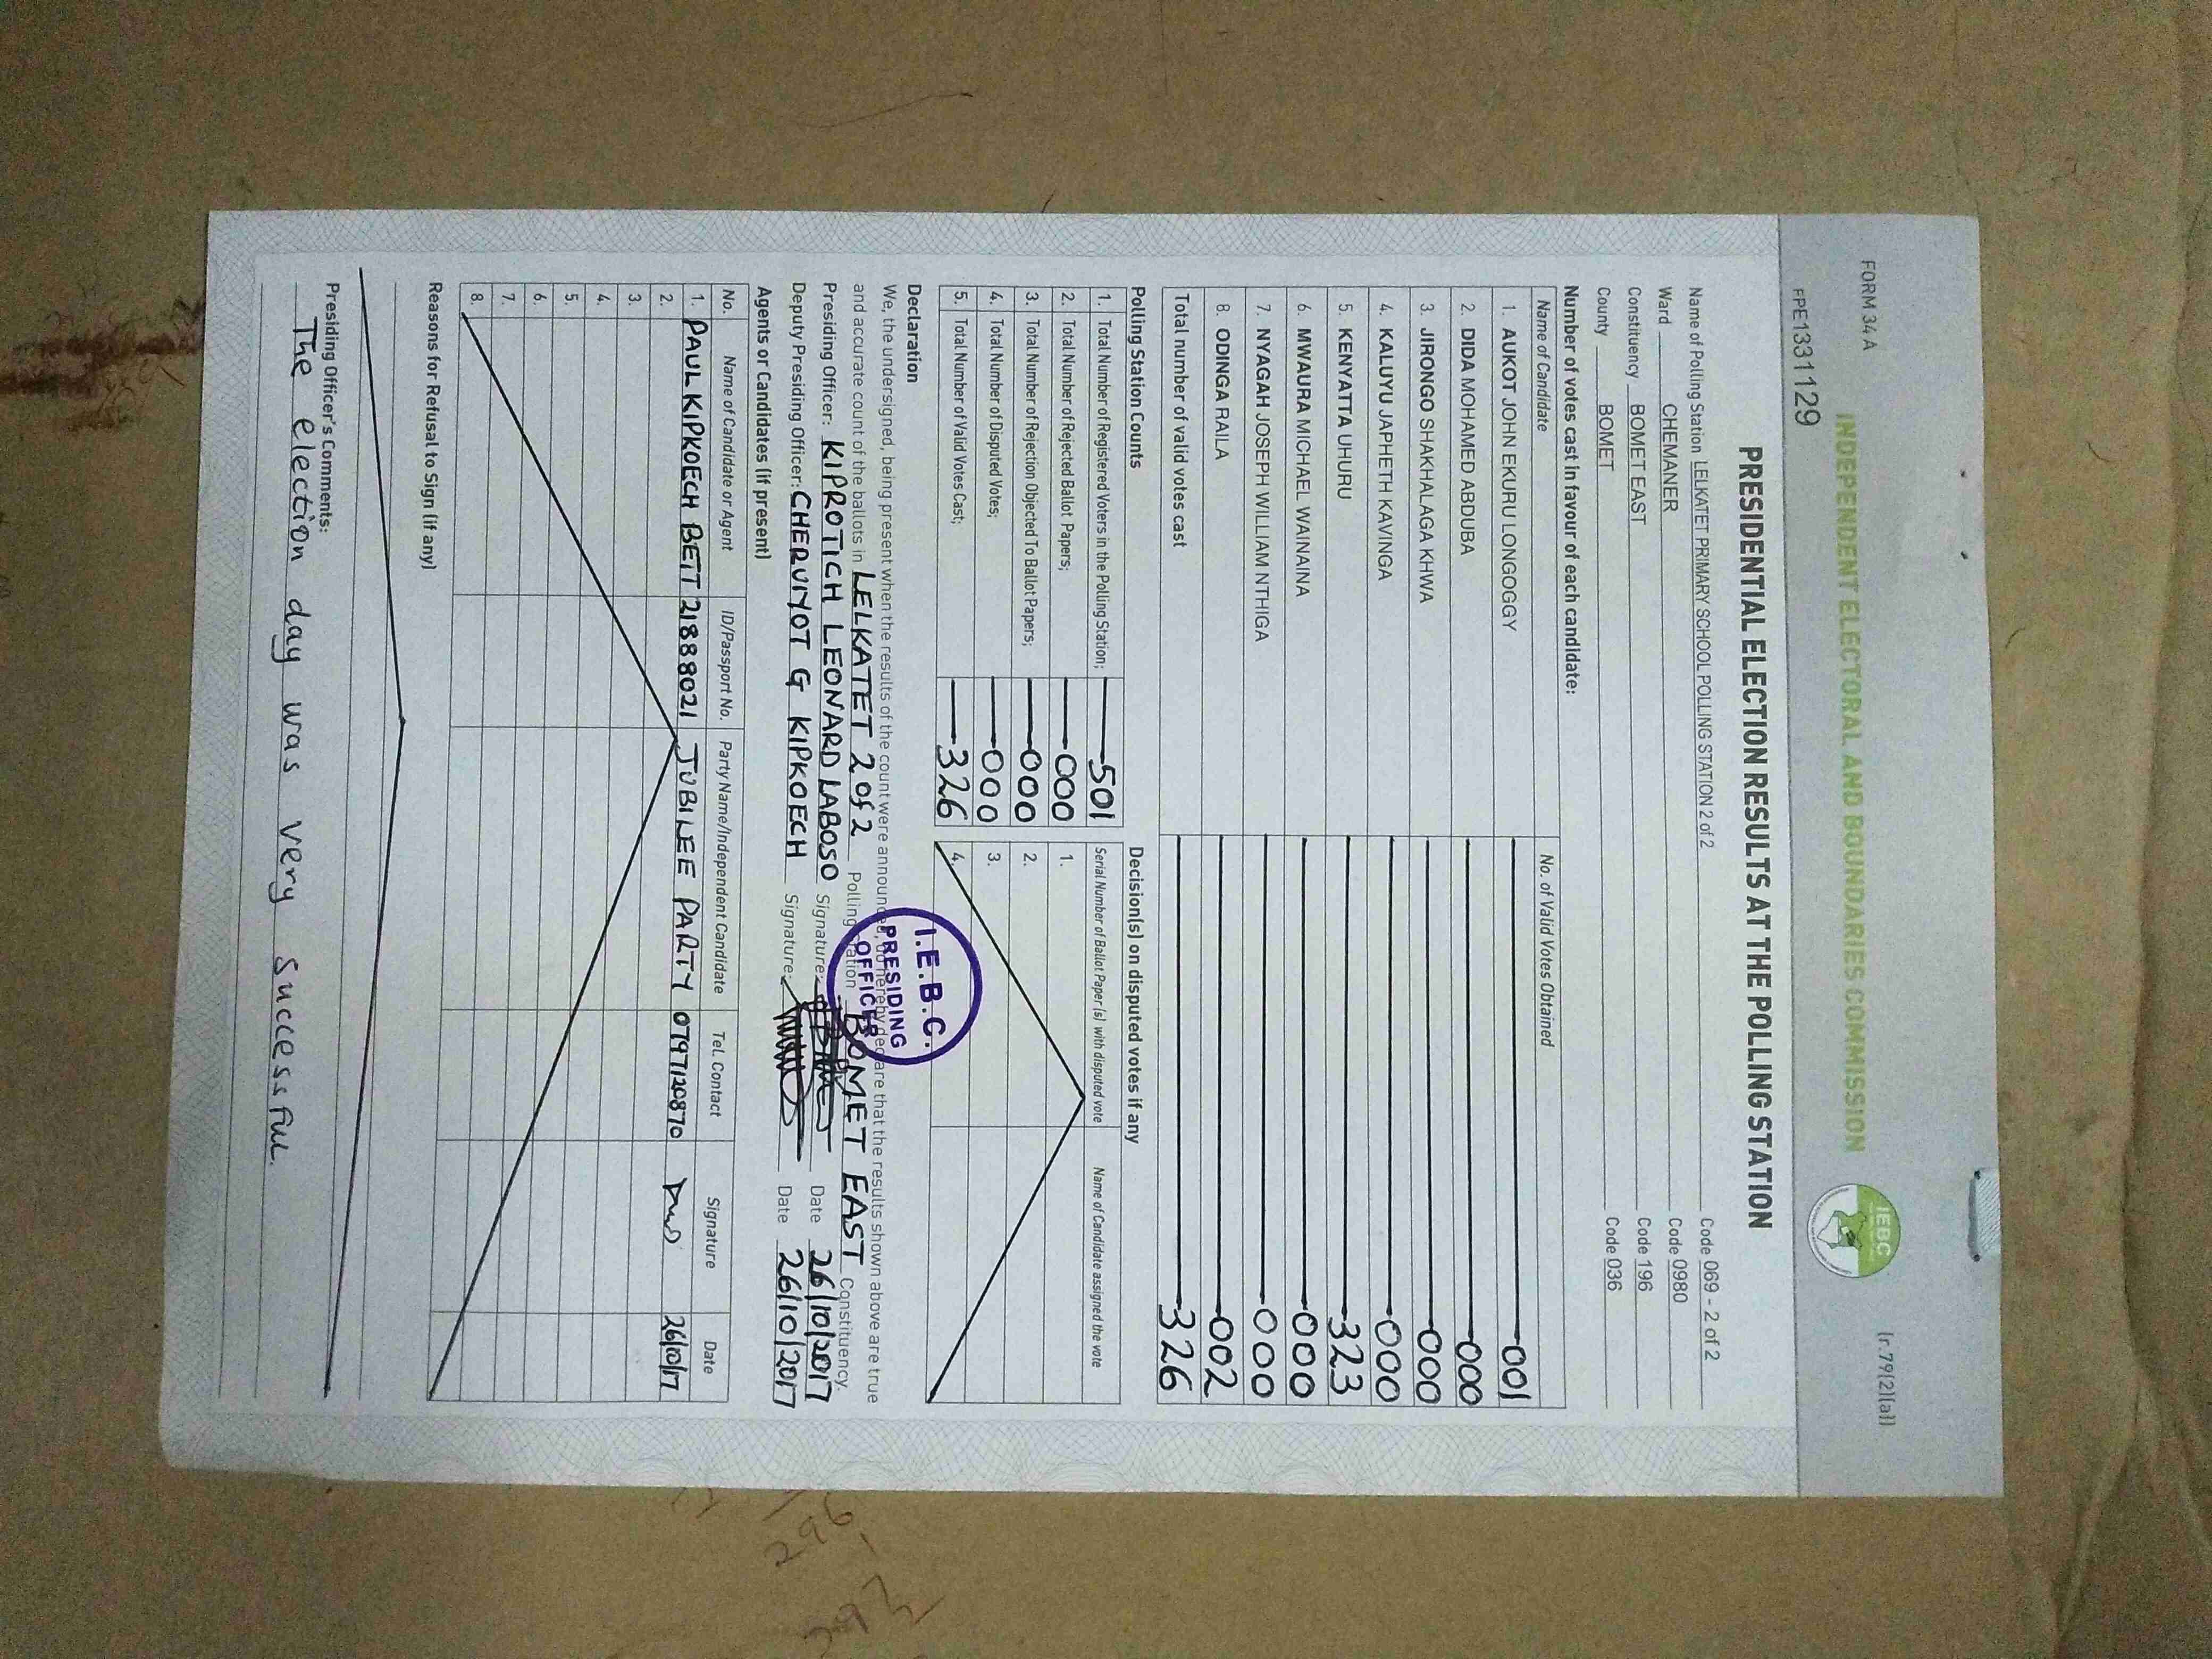 FORM 34 A
(r.79(2)(a))
INDEPENDENT ELECTORAL AND BOUNDARIES COMMISSION
IEBC
PPE1331129
PRESIDENTIAL ELECTION RESULTS AT THE POLLING STATION
Name of Polling Station LELKATET PRIMARY SCHOOL POLLING STATION 2 of 2 Code 069 - 2 of 2
Ward CHEMANER Code 0980
Constituency BOMET EAST Code 196
County BOMET Code 036
Number of votes cast in favour of each candidate:
Name of Candidate No. of Valid Votes Obtained
1. AUKOT JOHN EKURU LONGOGGY 001
2. DIDA MOHAMED ABDUBA 000
3. JIRONGO SHAKHALAGA KHWA 000
4. KALUYU JAPHETH KAVINGA 000
5. KENYATTA UHURU 323
6. MWAURA MICHAEL WAINAINA 000
7. NYAGAH JOSEPH WILLIAM NTHIGA 000
8. ODINGA RAILA 002
Total number of valid votes cast 326
Polling Station Counts
1. Total Number of Registered Voters in the Polling Station; 501
2. Total Number of Rejected Ballot Papers; 000
3. Total Number of Rejection Objected To Ballot Papers; 000
4. Total Number of Disputed Votes; 000
5. Total Number of Valid Votes Cast; 326
Decision(s) on disputed votes if any
Serial Number of Ballot Paper(s) with disputed vote Name of Candidate assigned the vote
1.
2.
3.
4.
Declaration
We, the undersigned, being present when the results of the count were announced, do hereby declare that the results shown above are true
and accurate count of the ballots in LELKATET 2 of 2 Polling station BOMET EAST Constituency.
Presiding Officer: KIPROTICH LEONARD LABOSO Signature: Date 26/10/2017
Deputy Presiding Officer: CHERUIYOT G KIPKOECH Signature: Date 26/10/2017
I.E.B.C.
PRESIDING
OFFICER
Agents or Candidates (if present)
No. Name of Candidate or Agent ID/Passport No. Party Name/Independent Candidate Tel. Contact Signature Date
1. PAUL KIPKOECH BETT 21888021 JUBILEE PARTY 0797120870 26/10/17
2.
3.
4.
5.
6.
7.
8.
Reasons for Refusal to Sign (if any)
Presiding Officer's Comments:
The election day was very successful.
296